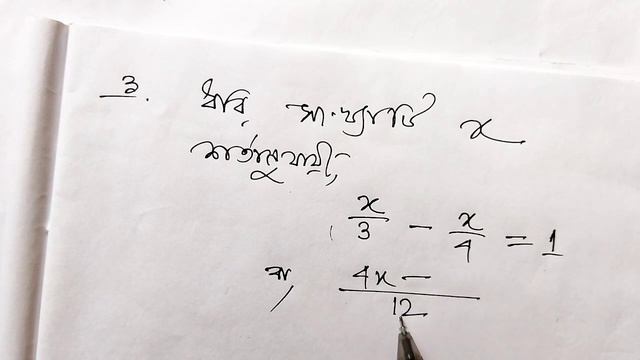 3. ধরি, সংখ্যাটি x
শর্তানুযায়ী,
x/3 - x/4 = 1
বা, 4x - /12